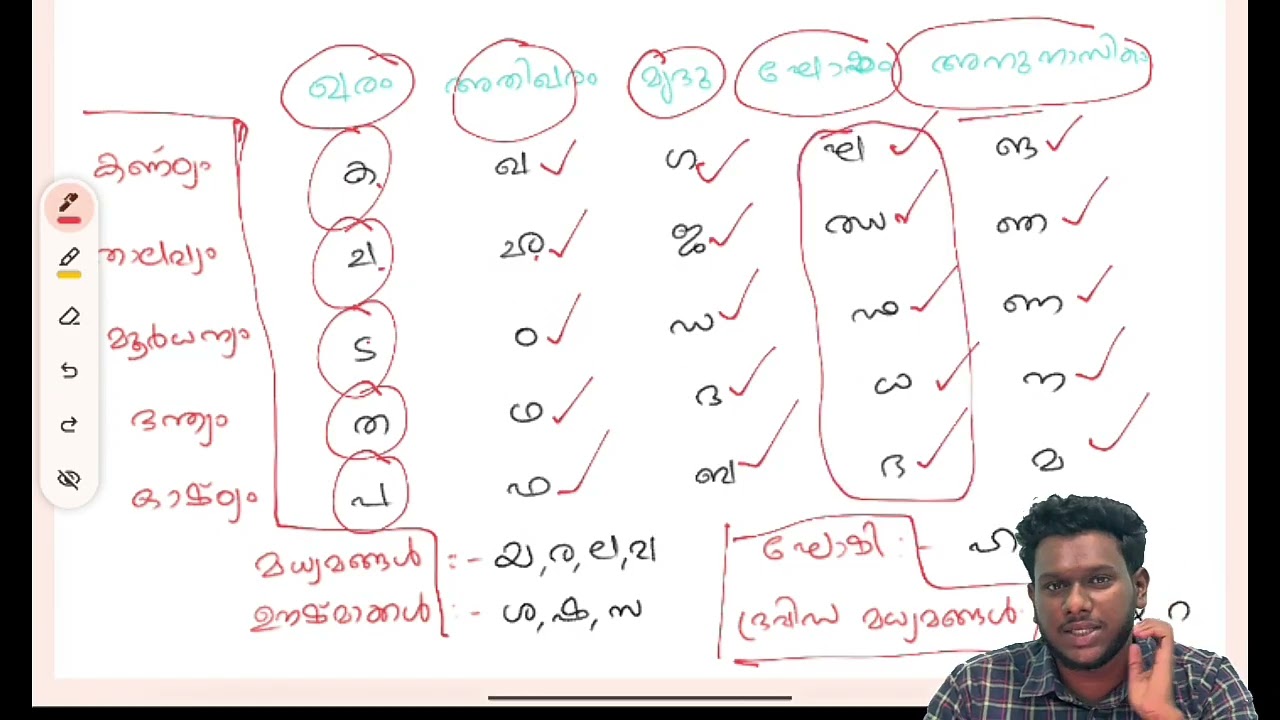 ഖരം അതിഖരം മൃദു ഘോഷം അനുനാസികം
കണ്ഠ്യം ക ഖ ഗ ഘ ങ
താലവ്യം ച ഛ ജ ഝ ഞ
മൂർധന്യം ട ഠ ഡ ഢ ണ
ദന്ത്യം ത ഥ ദ ധ ന
ഓഷ്ഠ്യം പ ഫ ബ ദ മ
മധ്യമങ്ങൾ :- യ, ര, ല, വ
ഘോഷി :- ഹ
ഊഷ്മാക്കൾ :- ശ, ഷ, സ
ദ്രവിഡ മധ്യമങ്ങൾ റ